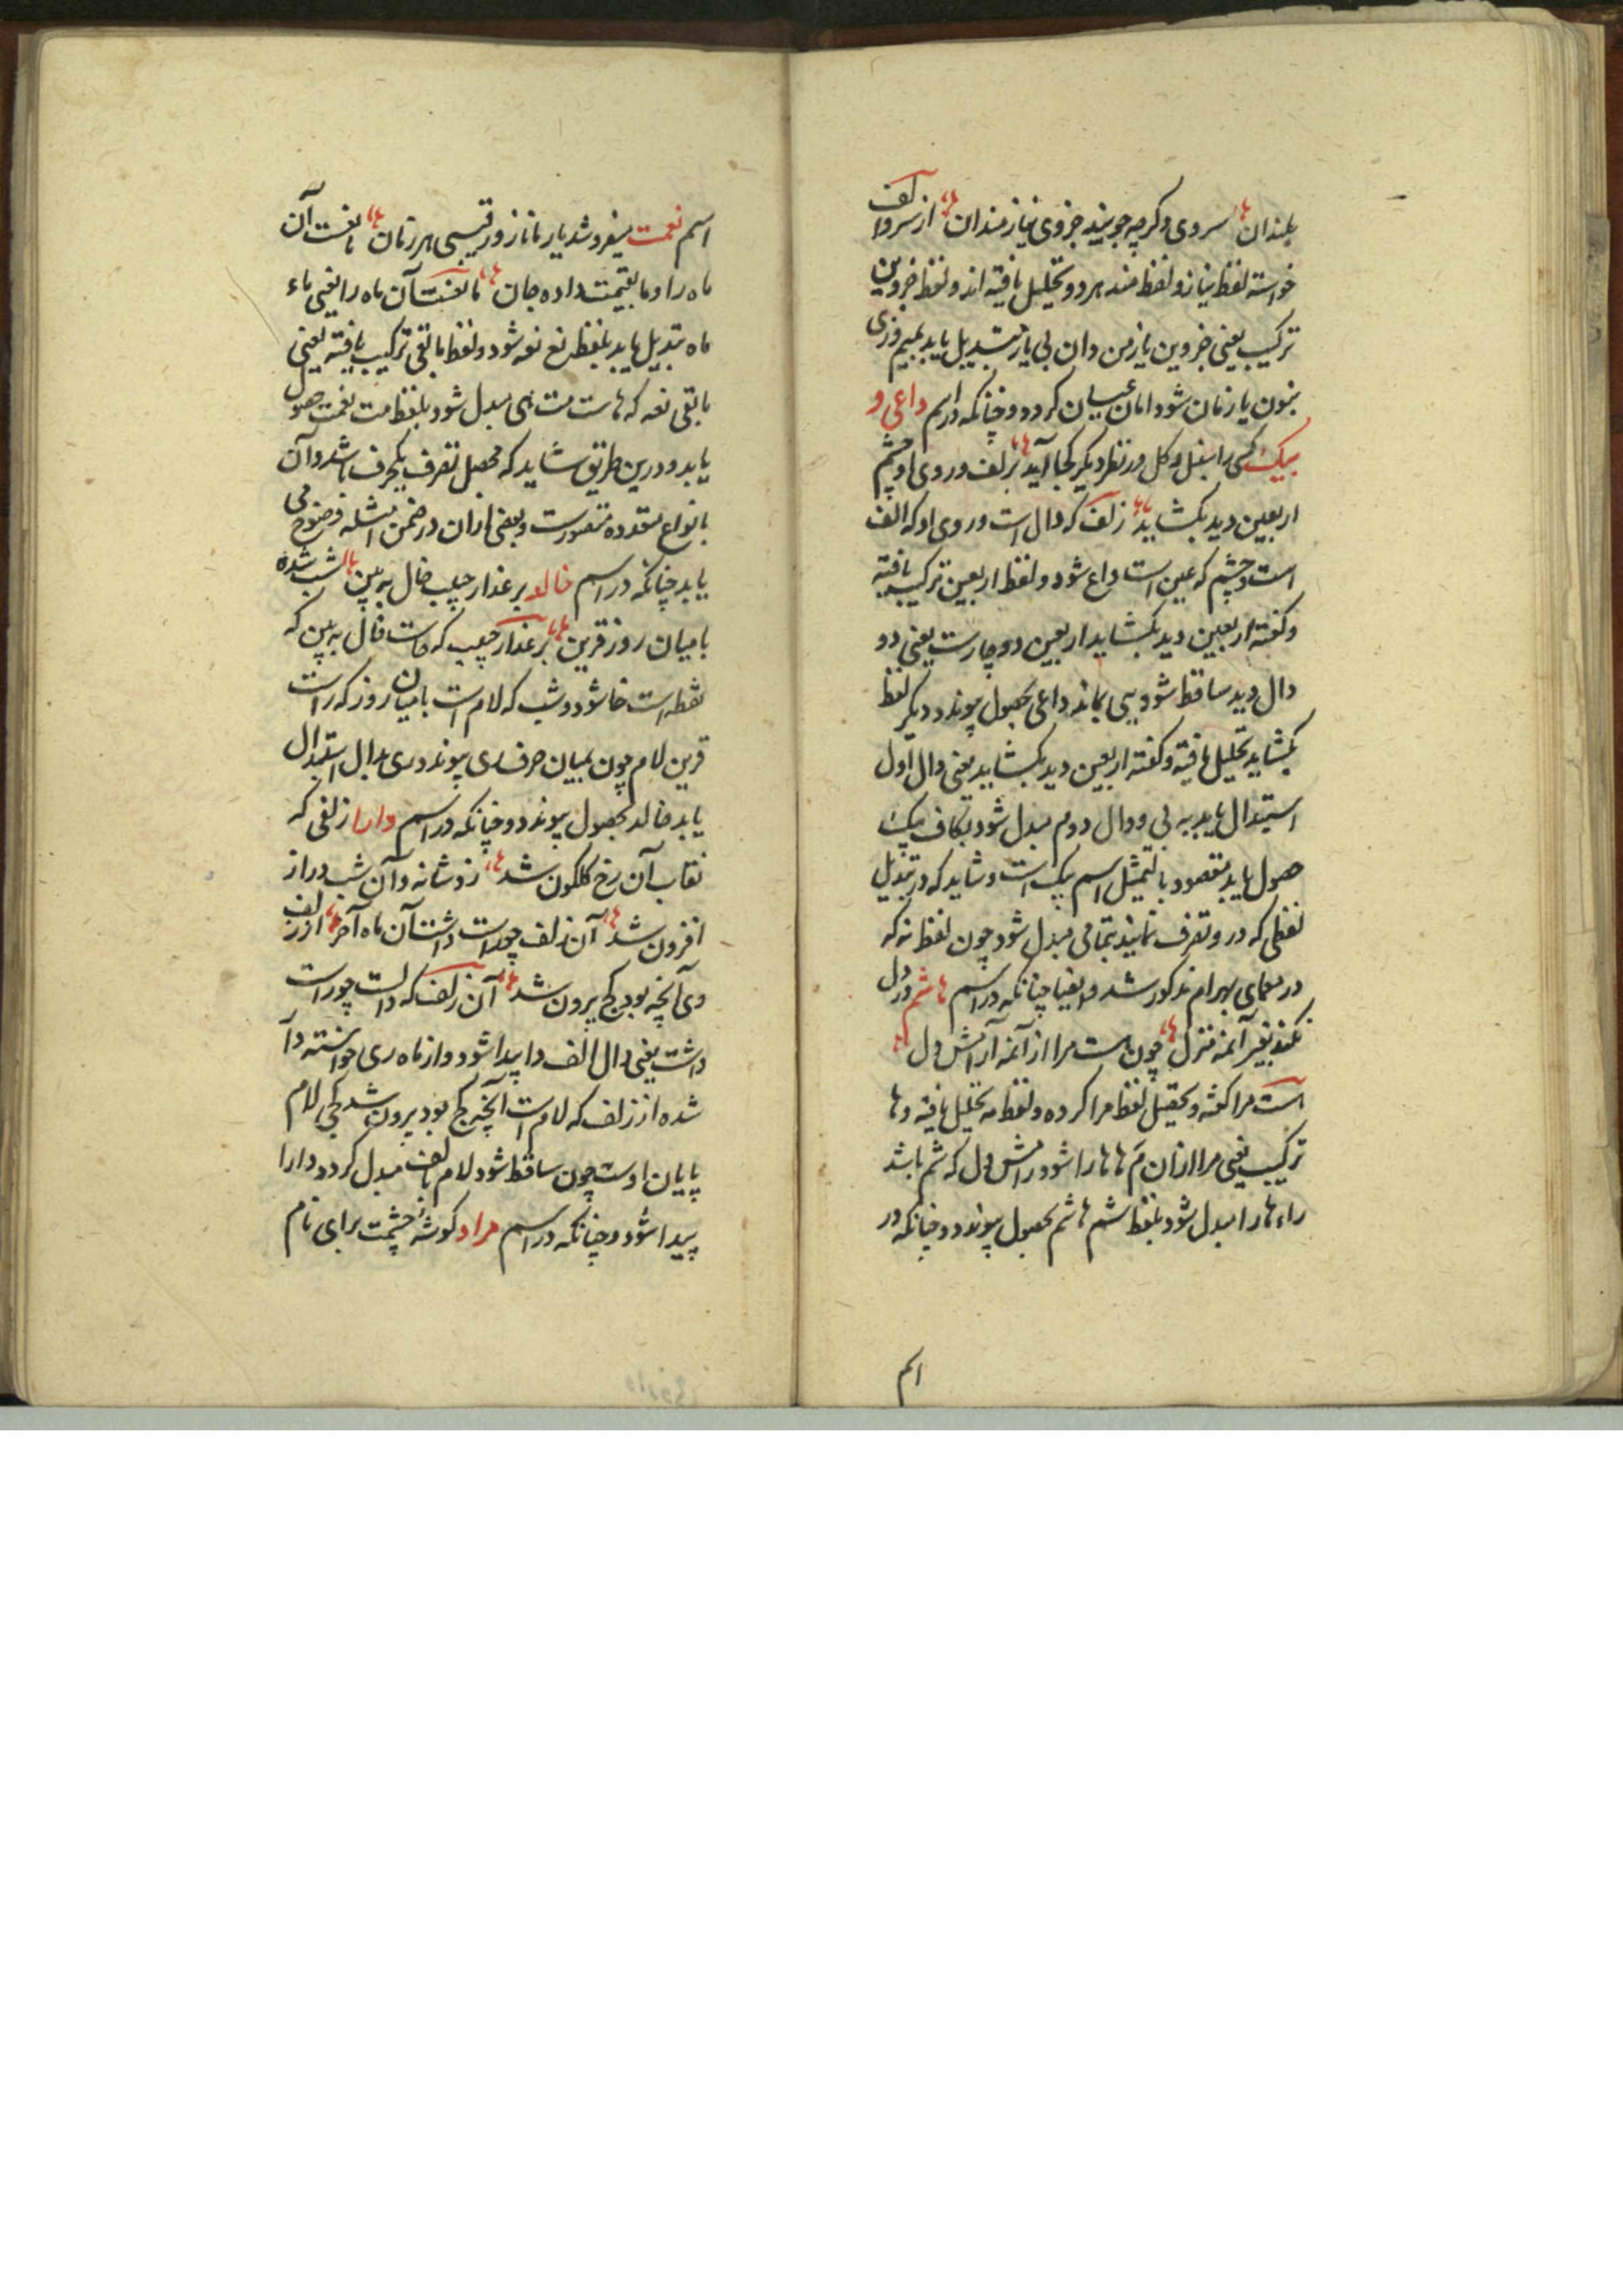 بلندان سروی و کرچه جویند جزوی نیازمندان از سرو الف
خواسته لفظ نیاز و لفظ مند هر دو تحلیل یافته اند و لفظ جزوین
ترکیب یعنی جزوین یاز من دان بی یاز تبدیل یابد بمیم وزی
بنون یاز مان شود امان عیان کردد و چنانکه در اسم داعی و
بیک کی را سنبل و کل در نظر دیکر کجا آید بزلف و روی او چشم
اربعین دید بکشاید زلف که دال است و روی او که الف
است و چشم که عین است داع شود و لفظ اربعین ترکیب یافته
و کفته اربعین دید بکشاید اربعین دو چارست یعنی دو
دال دید ساقط شود یی بماند داعی بحصول پیوندد دیکر لفظ
بکشاید تحلیل یافته و کفته اربعین دید بکشاید یعنی دال اول
استبدال یابد به بی و دال دوم مبدل شود بکاف بیک
حصول یابد مقصود بالتمثیل اسم بیک است و شاید که در تبدیل
لفظی که درو تصرف نمایند بتمامی مبدل شود چون لفظ نه که
در معمای بهرام مذکور شد و ایضا چنانکه در اسم هاشم در دل
نکند بغیر آئمه منزل چون هست مرا از آئمه آرامش دل
است مرا کفته و تحصیل لفظ مرا کرده و لفظ مه تحلیل یافته و ها
ترکیب یعنی مرا از ان م ها هارا شود رامش دل که شم باشد
راء هارا مبدل شود بلفظ شم هاشم بحصول پیوندد و چنانکه در
اسم
اسم نعمت میفروشد یار ما ناز و رقیبی هر زمان یافت آن
ماه را و ما بقیمت داده جان ما یافت آن ماه را یعنی ماء
ماه تبدیل یابد بلفظ نع نعه شود و لفظ مابقی ترکیب یافته یعنی
مابقی نعه که هاست مت یی مبدل شود بلفظ مت نعمت حصول
یابد و درین طریق شاید که محصل تصرف یکحرف باشد و آن
بانواع متعدده متصورست و بعضی ازان در ضمن امثله وضوح می
یابد چنانکه در اسم خالد بر عذار حبیب خال به بین باشب شده
بامیان روز قرین بر عذار حبیب که حاست خال به بین که
نقطه است خا شود و شب که لام است بامیان روز که راست
قرین لام چون بمیان حرف ری پیوندد و ری بدال استبدال
یابد خالد بحصول پیوندد و چنانکه در اسم دارا زلفی که
نقاب آن رخ کلکون شد زد شانه و آن شب دراز
افزون شد آن زلف چو راست داشت آن ماه آخر از زلف
وی آنچه بود کج بیرون شد آن زلف که دالست چو راست
داشت یعنی دال الف دا پیدا شود و از ماه ری خواسته و آ
شده از زلف که لام است آنچه کج بود بیرون شد کجی لام
پایان اوست چون ساقط شود لام بالف مبدل کردد دارا
پیدا شود و چنانکه در اسم مراد کوشهٔ چشمت برای نام